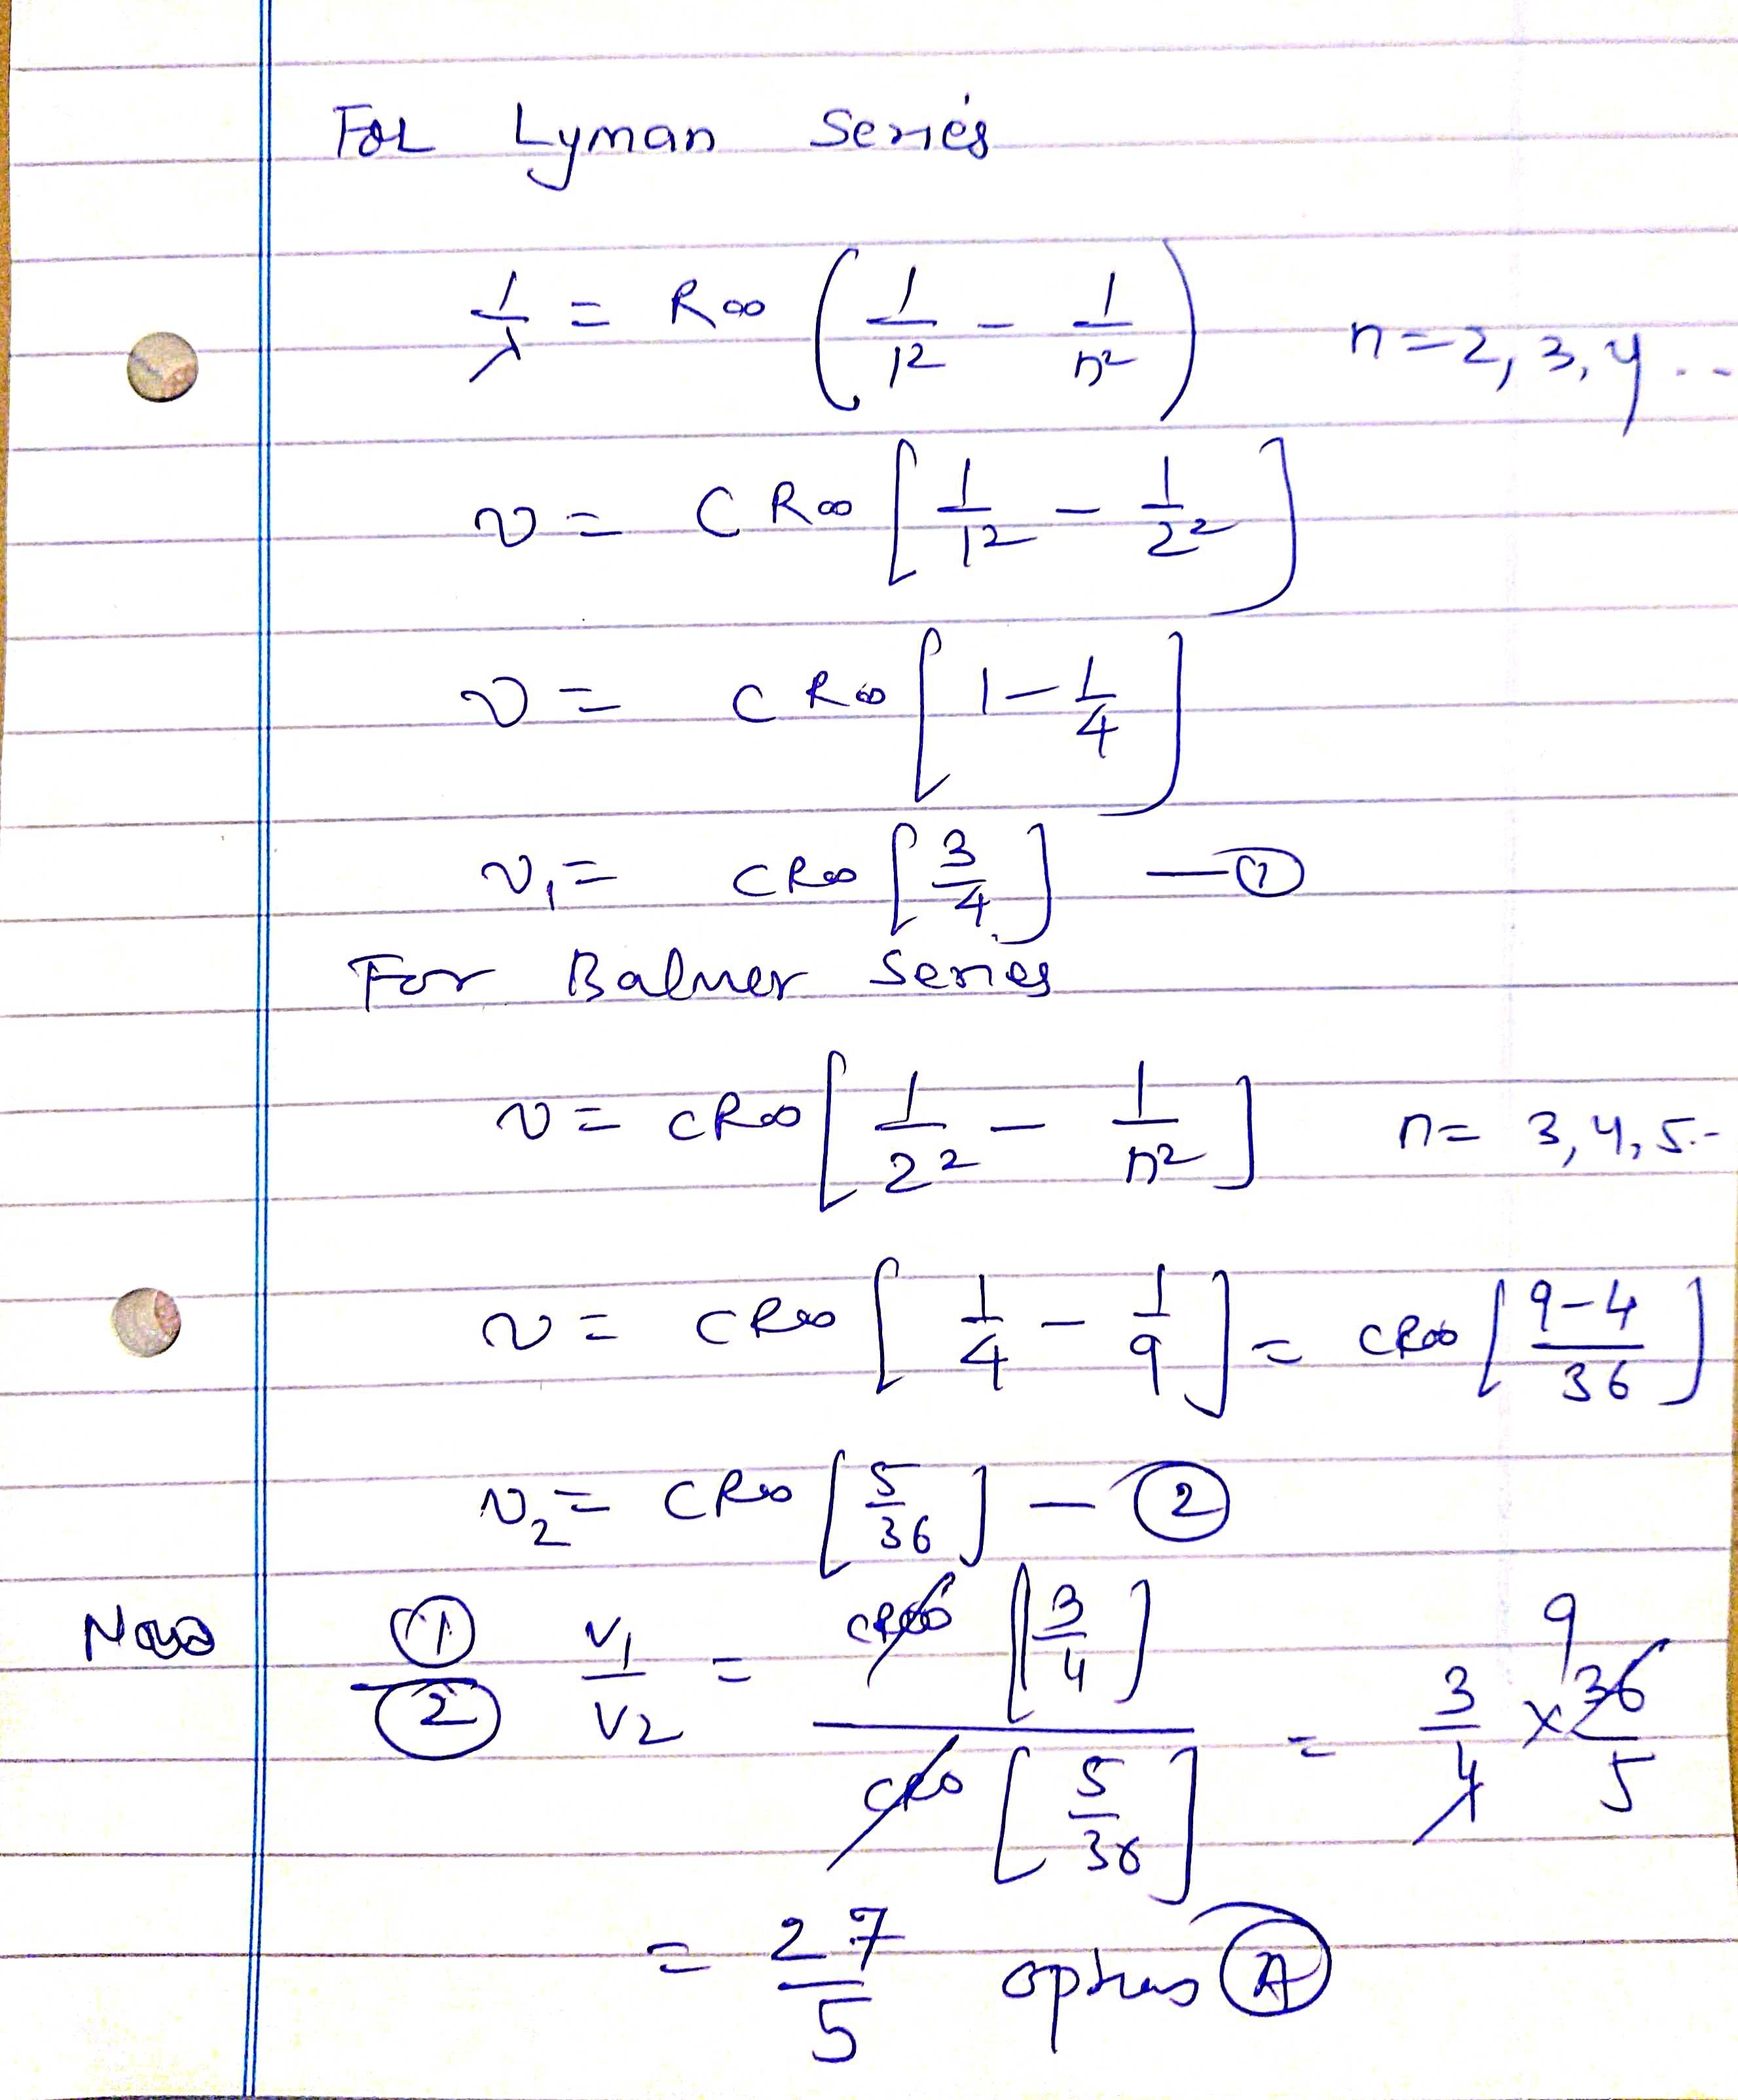 For Lyman Series
1/λ = R∞ ( 1/1² - 1/n² ) n=2, 3, 4 ..
ν = C R∞ [ 1/1² - 1/2² ]
ν = C R∞ [ 1 - 1/4 ]
ν₁ = C R∞ [ 3/4 ] — ①
For Balmer Series
ν = C R∞ [ 1/2² - 1/n² ] n = 3, 4, 5..
ν = C R∞ [ 1/4 - 1/9 ] = C R∞ [ 9-4/36 ]
ν₂ = C R∞ [ 5/36 ] — ②
Now ①/② ν₁/ν₂ = C R∞ [ 3/4 ] / C R∞ [ 5/36 ] = 3/4 × 36/5 9
= 27/5 option Ⓐ